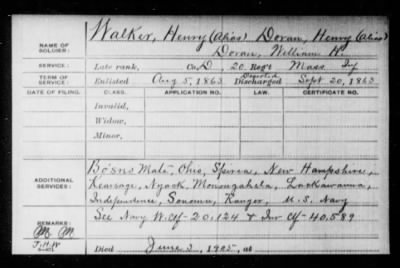 Walker, Henry (Alias) Doran, Henry (Alias)
NAME OF SOLDIER: Doran, William H.
SERVICE: Late rank, Co. D 20 Reg't Mass. Inf
TERM OF SERVICE: Enlisted Aug 5, 1863 Deserted Discharged Sept 20, 1863
DATE OF FILING. CLASS. APPLICATION NO. LAW. CERTIFICATE NO.
Invalid,
Widow,
Minor,
ADDITIONAL SERVICES: Bo'sns Mate, Ohio, Spirea, New Hampshire,
Kearsage, Nyack Monongahela, Lackawanna,
Independence, Sonoma, Ranger, U.S. Navy
REMARKS: See Navy W. Ctf - 20,124 & Inv Ctf - 40,589
M M
Died June 3, 1905, at